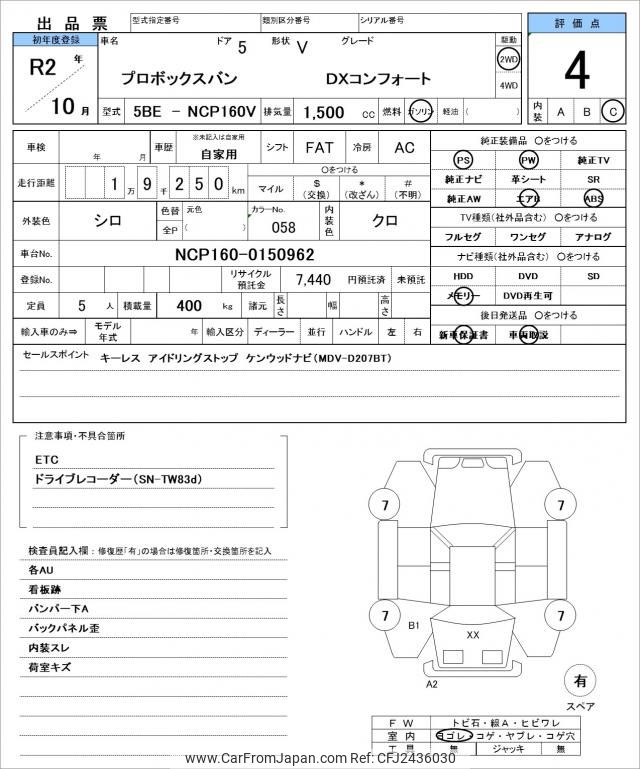 出品票
型式指定番号 類別区分番号 シリアル番号
評価点
初年度登録 車名 ドア 5 形状 V グレード 駆動
R2 年
10 月
プロボックスバン DXコンフォート
2WD
4WD
4
型式 5BE － NCP160V 排気量 1,500 cc 燃料 ガソリン 軽油 ( )
内装 A B C
車検 年 月 車歴 ※未記入は自家用 自家用 シフト FAT 冷房 AC
純正装備品 ○をつける
走行距離 1 万 9 千 2 5 0 km
○をつける
マイル $(交換) *(改ざん) #(不明)
PS PW 純正TV
純正ナビ 革シート SR
純正AW エアB ABS
外装色 シロ 色替 元色 全P ( ) カラーNo. 058 内装色 クロ
TV種類(社外品含む) ○をつける
フルセグ ワンセグ アナログ
車台No. NCP160-0150962
ナビ種類(社外品含む) ○をつける
登録No. リサイクル預託金 7,440 円預託済 未預託
HDD DVD SD
定員 5 人 積載量 400 kg 諸元 長さ 幅 高さ
メモリー DVD再生可
後日発送品 ○をつける
輸入車のみ⇒ モデル年式 年 輸入区分 ディーラー 並行 ハンドル 左 右
新車保証書 車両取説
セールスポイント キーレス アイドリングストップ ケンウッドナビ(MDV-D207BT)
注意事項・不具合箇所
ETC
ドライブレコーダー(SN-TW83d)
検査員記入欄：修復歴「有」の場合は修復箇所・交換箇所を記入
各AU
看板跡
バンパー下A
バックパネル歪
内装スレ
荷室キズ
7 7
7 7
B1
XX
A2
有
スペア
FW トビ石・線A・ヒビワレ
室内 ヨゴレ・コゲ・ヤブレ・コゲ穴
工具 無 ジャッキ 無
www.CarFromJapan.com Ref: CFJ2436030